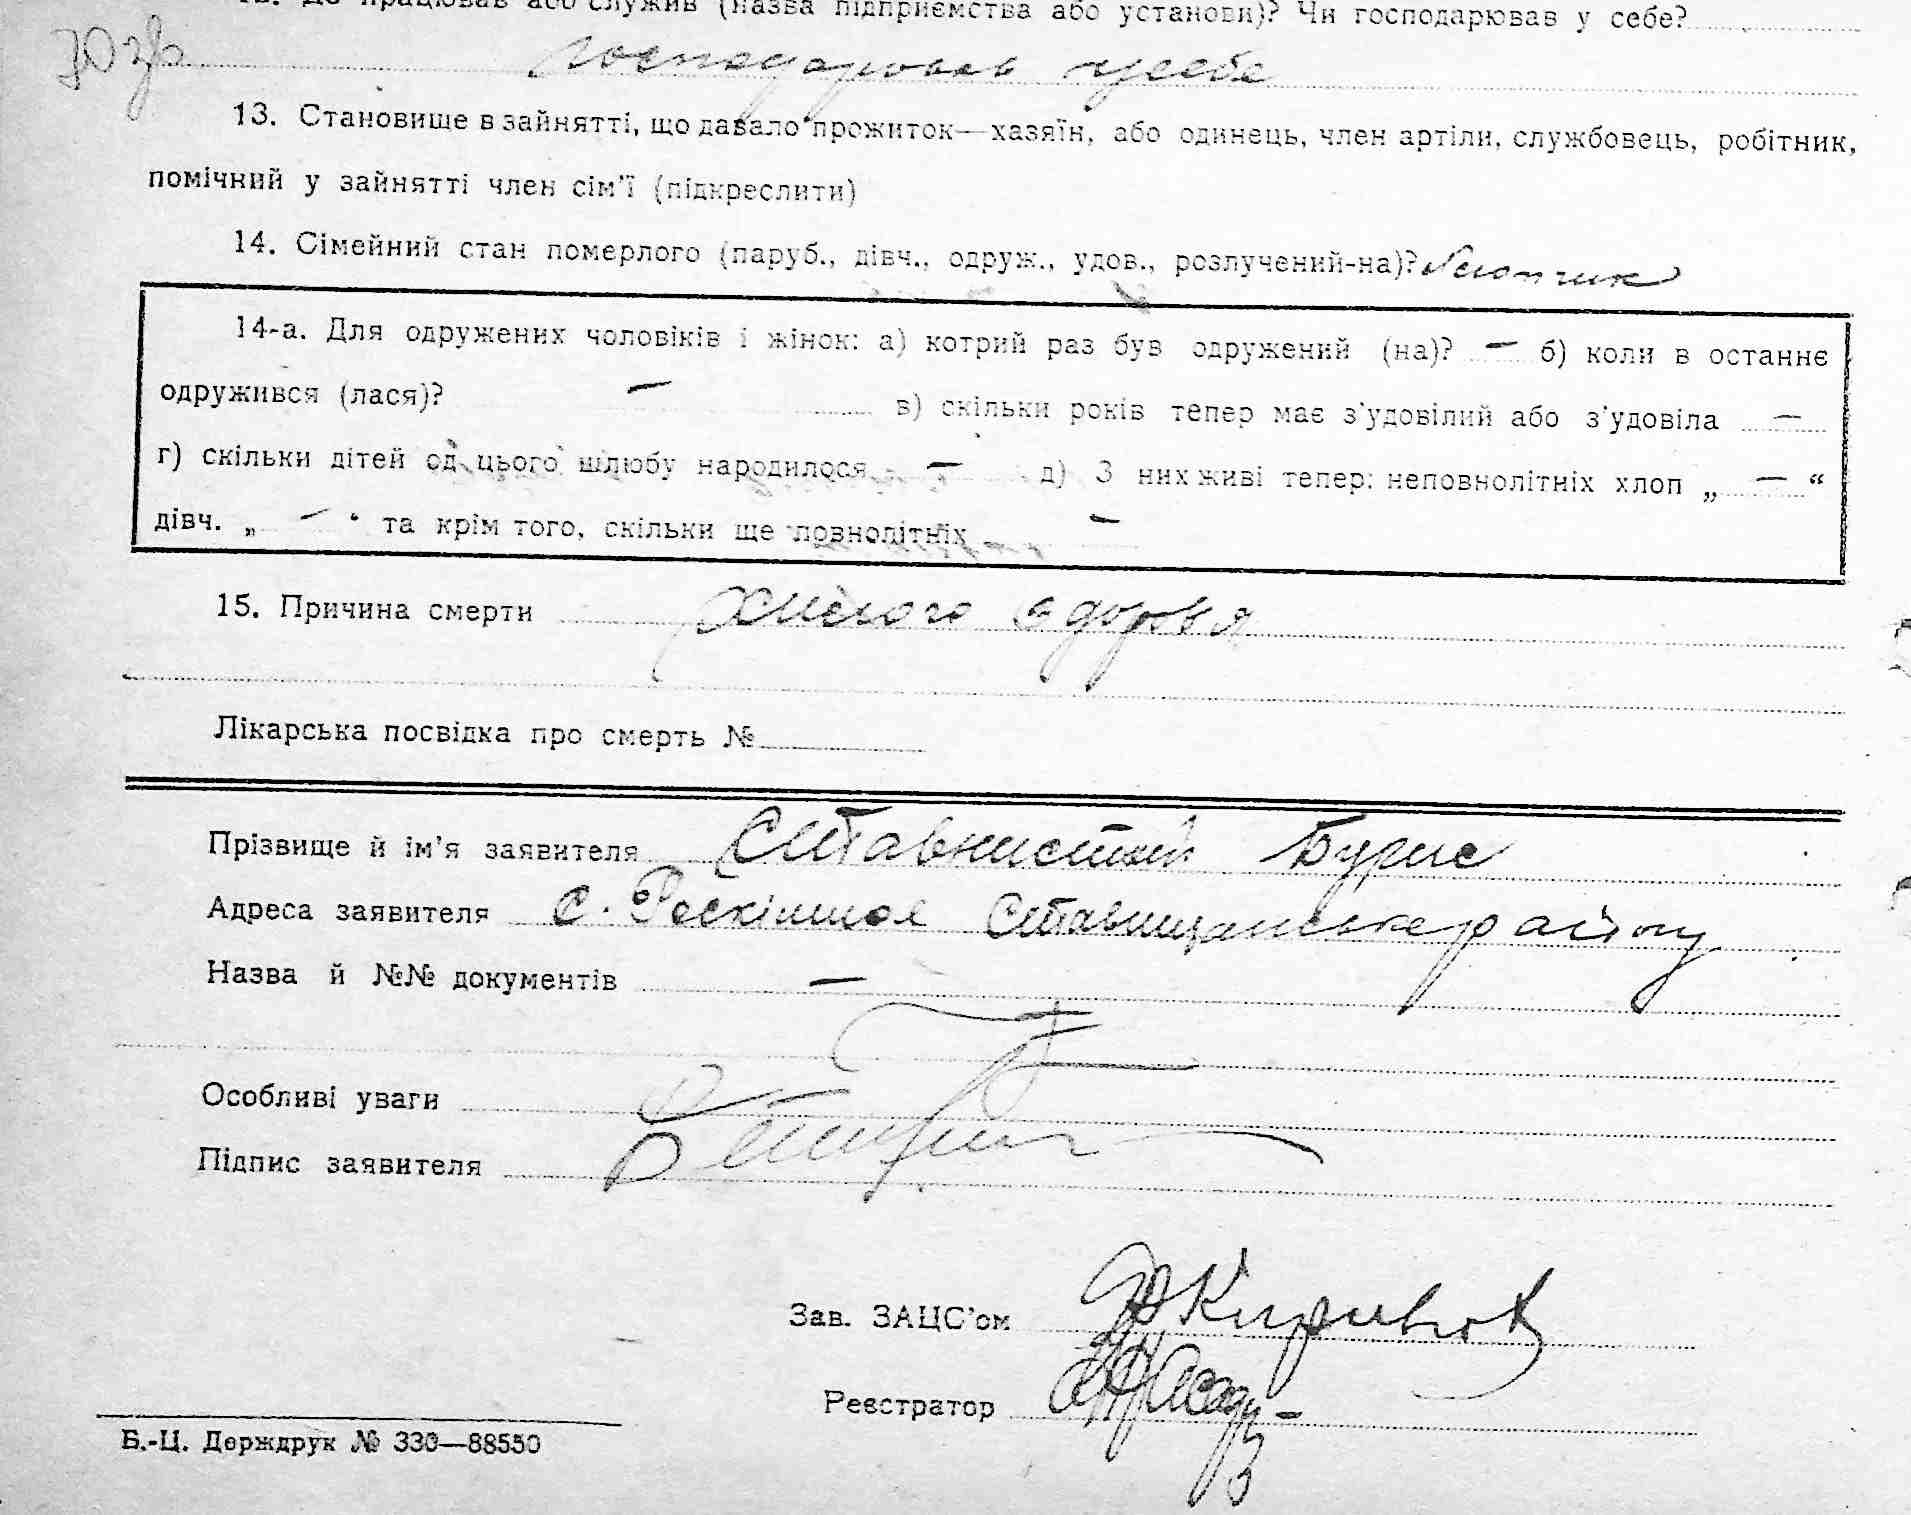 12. Де працював або служив (назва підприємства або установи)? Чи господарював у себе?
господарював усебе
13. Становище в зайнятті, що давало прожиток—хазяїн, або одинець, член артіли, службовець, робітник,
помічний у зайнятті член сім'ї (підкреслити)
14. Сімейний стан померлого (паруб., дівч., одруж., удов., розлучений-на)?
14-а. Для одружених чоловіків і жінок: а) котрий раз був одружений (на)? — б) коли в останнє
одружився (лася)? — в) скільки років тепер має з'удовілий або з'удовіла —
г) скільки дітей од цього шлюбу народилося — д) З них живі тепер: неповнолітніх хлоп „ — “
дівч. „ — “ та крім того, скільки ще повнолітніх —
15. Причина смерти здоровя
Лікарська посвідка про смерть №
Прізвище й ім'я заявителя Ставнистий Бурис
Адреса заявителя с. Роскішная Ставищанське району
Назва й №№ документів —
Особливі уваги
Підпис заявителя
Зав. ЗАЦС'ом
Реєстратор
Б.-Ц. Держдрук № 330—88550